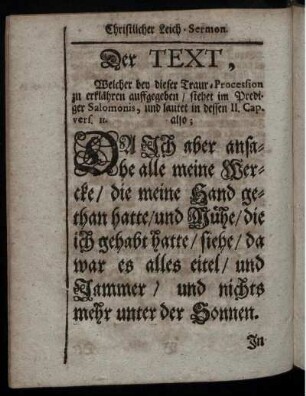 Christlicher Leich-Sermon.
Der TEXT,
Welcher bey dieser Traur-Procession
zu erklähren auffgegeben / stehet im Predi-
ger Salomonis, und lautet in dessen II. Cap.
vers. 11. also;
DA Ich aber ansa-
he alle meine Wer-
cke / die meine Hand ge-
than hatte / und Mühe / die
ich gehabt hatte / siehe / da
war es alles eitel / und
Jammer / und nichts
mehr unter der Sonnen.
In